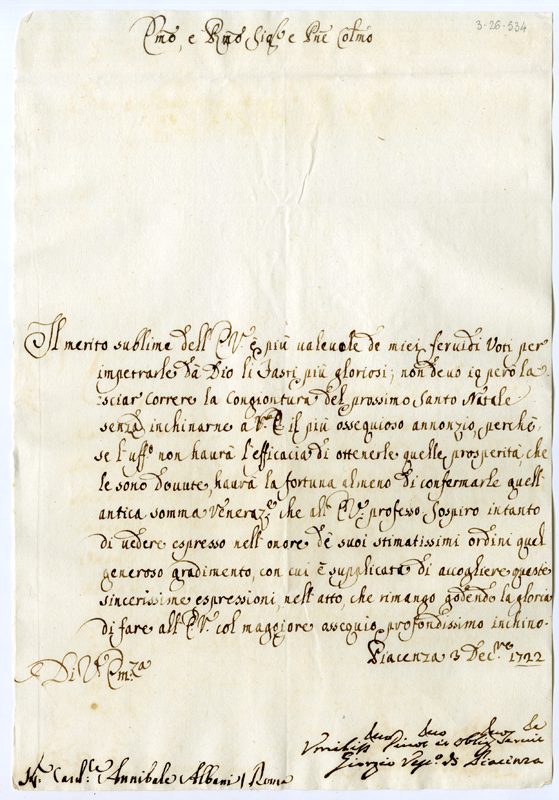 3-26-534
Em̃o, e Rm̃o Sig.r e Pñe Colm̃o
Il merito sublime dell'E.V. è più valevole de miei fervidi Voti per
impetrarle dà Dio li Fasti più gloriosi; non devo io però la-
:sciar correre la Congiontura del prossimo Santo Natale
senza inchinarne à V.E. il più ossequioso annonzio, perchè,
se l'uff.o non haurà l'efficacia di ottenerle quelle prosperità, che
le sono dovute, haurà la fortuna almeno di confermarle quell'
antica somma Veneraz.e che all'E.V. professo. Sospiro intanto
di vedere espresso nell'onore de suoi stimatissimi ordini quel
generoso gradimento, con cui è supplicata di accogliere queste
sincerissime espressioni, nell'atto, che rimango godendo la gloria
di fare all'E.V. col maggiore assequio profondissimo inchino.
Piacenza 3 Dec.re 1722
Di V. Em.za
Giorgio Vesc.o di Piacenza
Sig. Card.le Annibale Albani / Roma